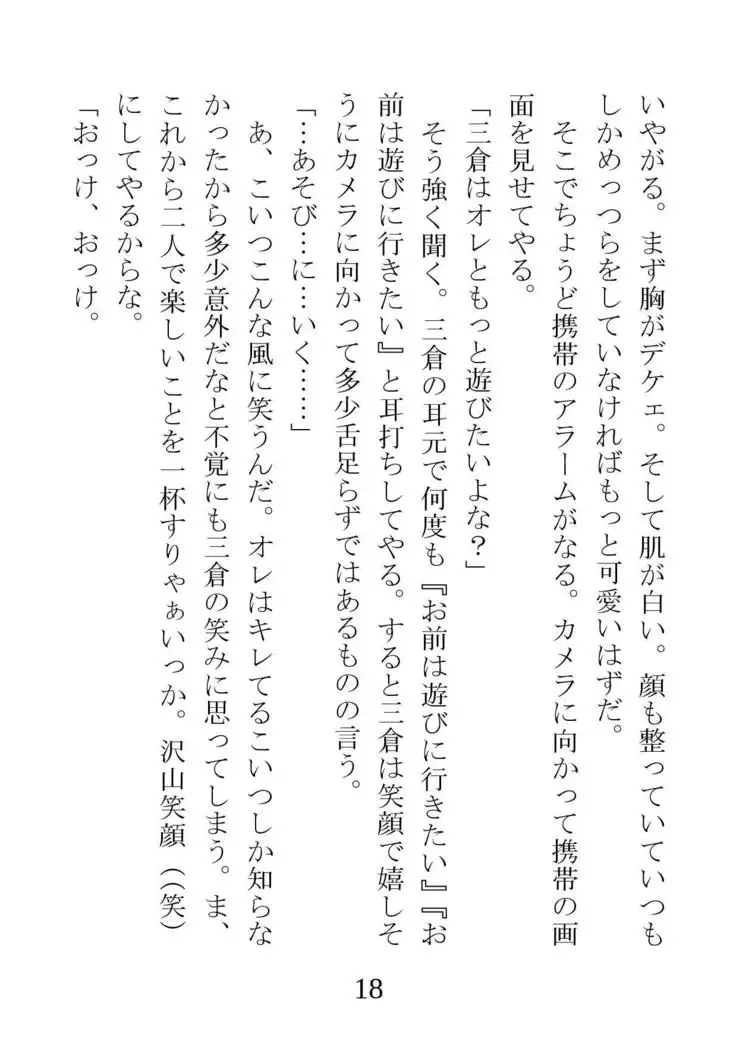 いやがる。まず胸がデケェ。そして肌が白い。顔も整っていていつも
しかめっつらをしていなければもっと可愛いはずだ。
そこでちょうど携帯のアラームがなる。カメラに向かって携帯の画
面を見せてやる。
「三倉はオレともっと遊びたいよな？」
そう強く聞く。三倉の耳元で何度も『お前は遊びに行きたい』『お
前は遊びに行きたい』と耳打ちしてやる。すると三倉は笑顔で嬉しそ
うにカメラに向かって多少舌足らずではあるものの言う。
「…あそび…に…いく……」
あ、こいつこんな風に笑うんだ。オレはキレてるこいつしか知らな
かったから多少意外だなと不覚にも三倉の笑みに思ってしまう。ま、
これから二人で楽しいことを一杯すりゃぁいっか。沢山笑顔（（笑）
にしてやるからな。
「おっけ、おっけ。
18